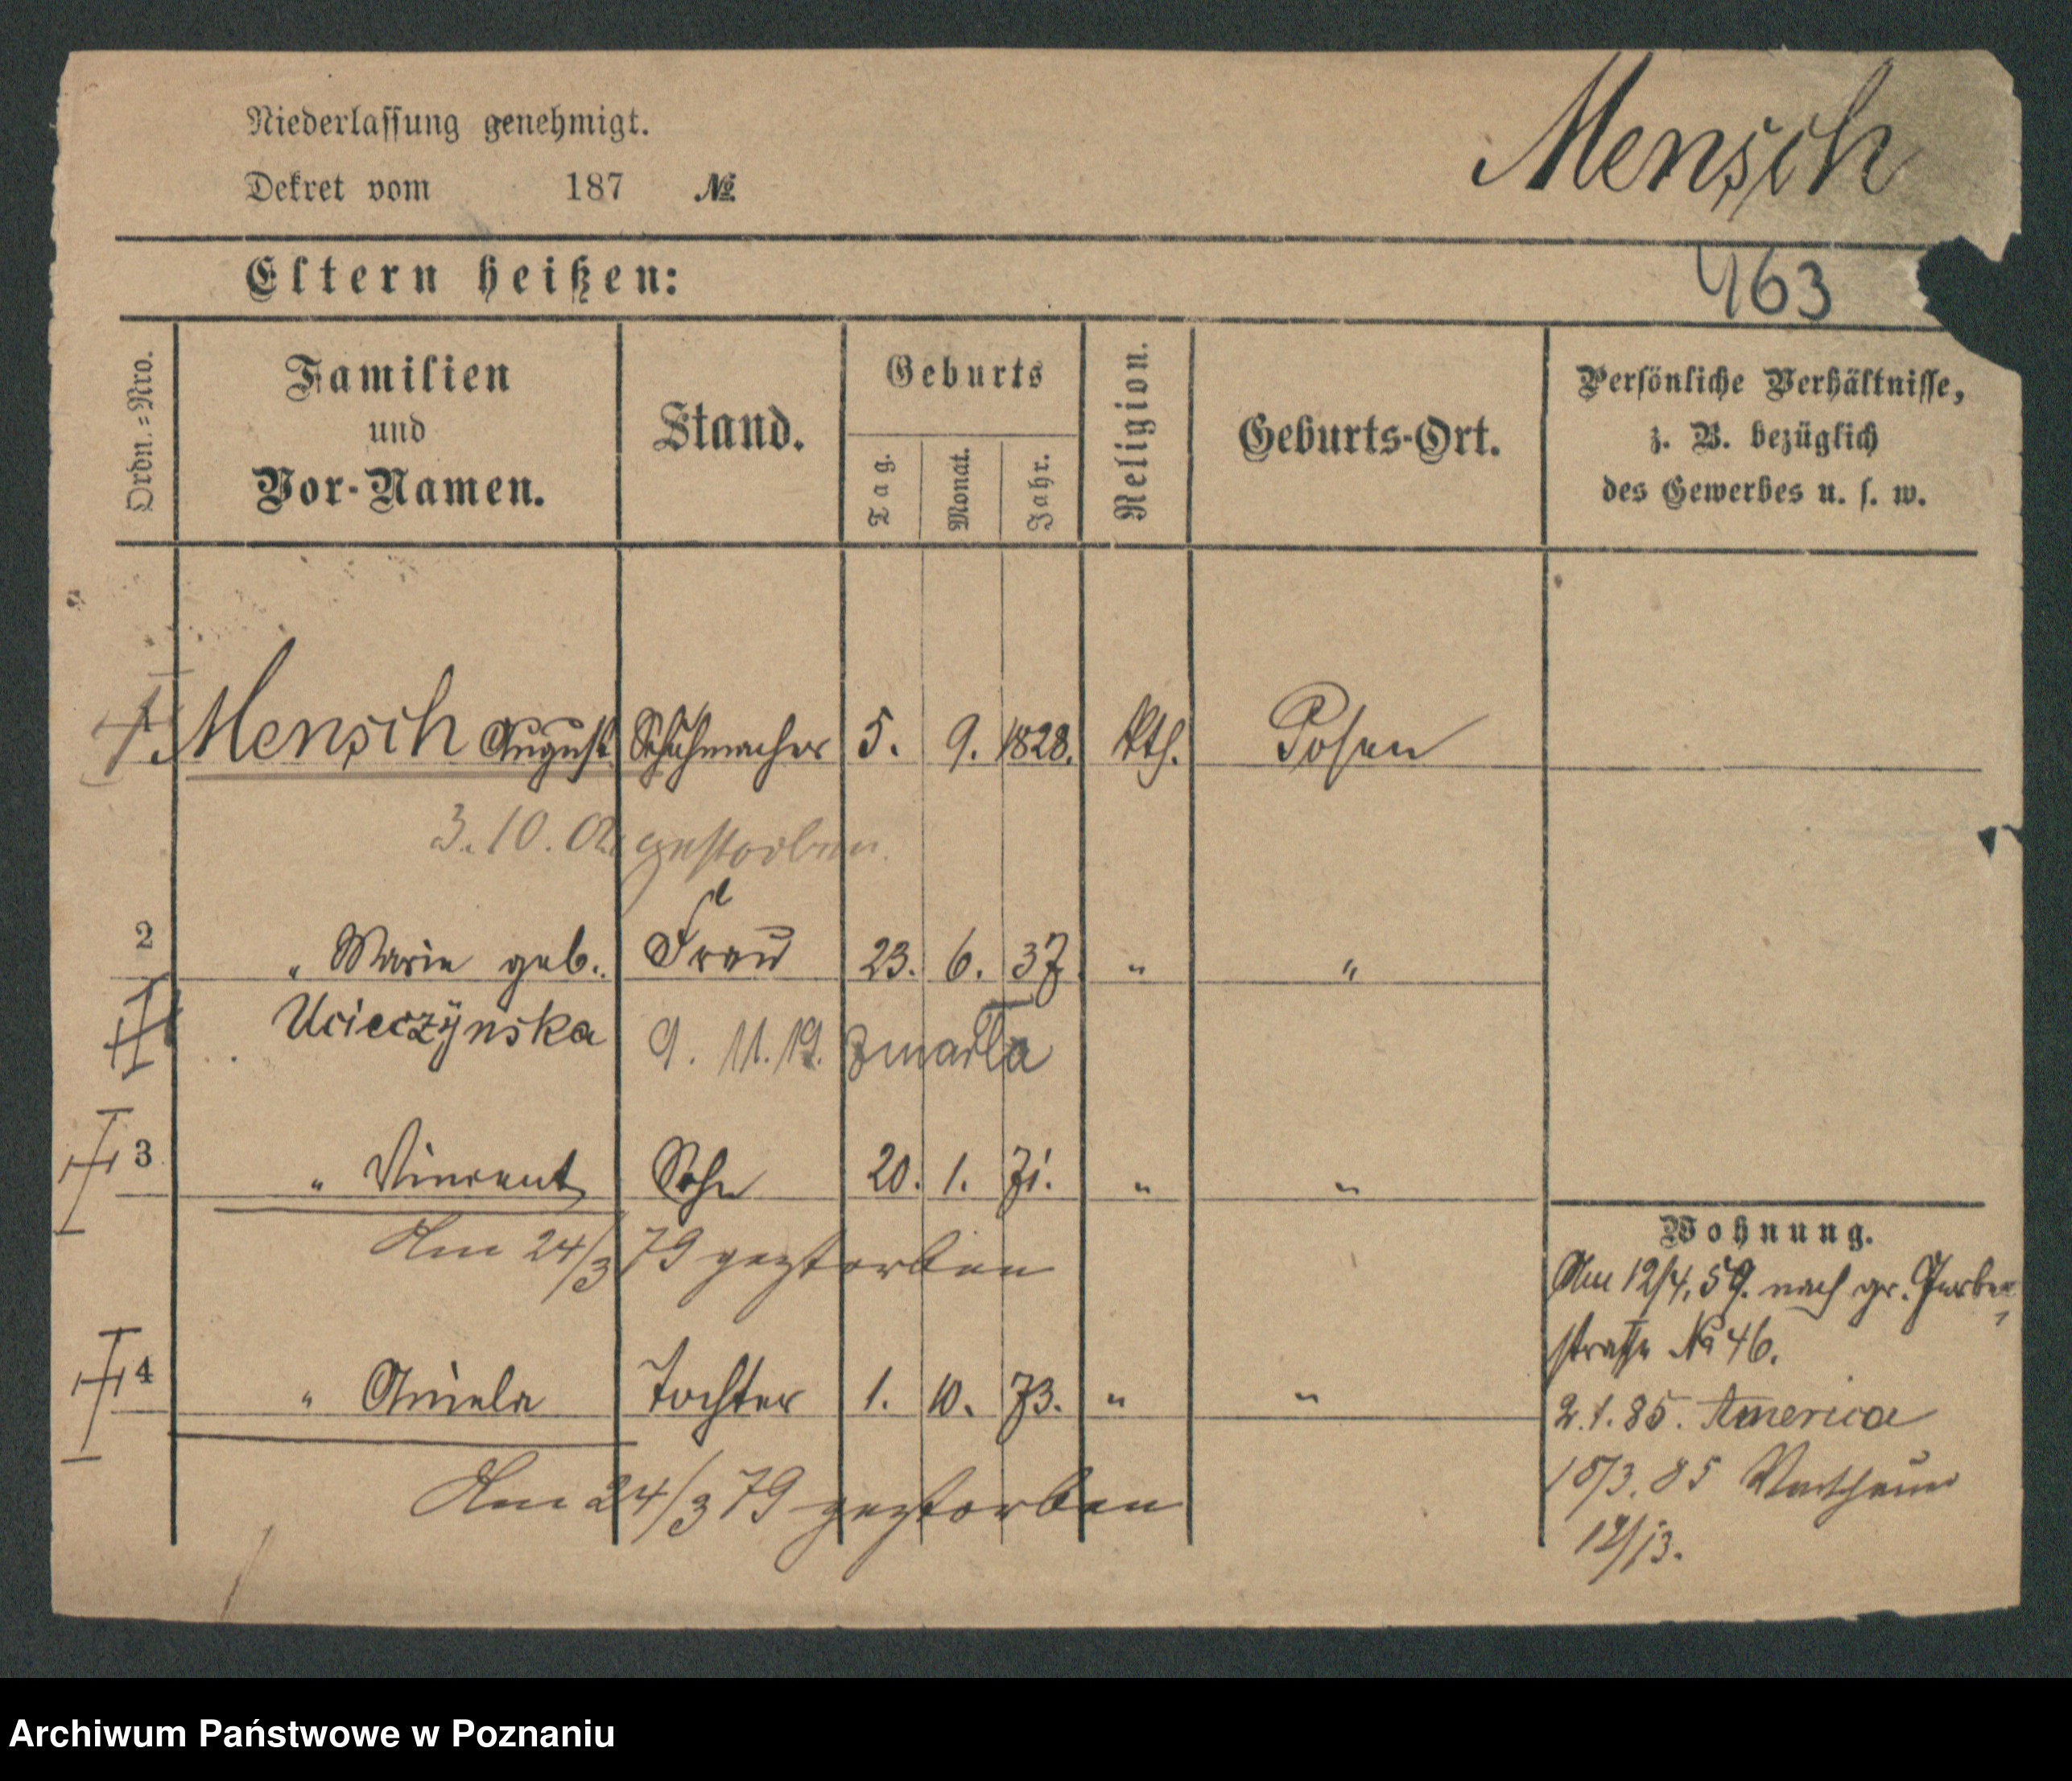 Niederlassung genehmigt.
Dekret vom 187 №
Mensch
Eltern heißen:
463
Ordn.=Nro.
Familien
und
Vor-Namen.
Stand.
Geburts
Tag.
Monat.
Jahr.
Religion.
Geburts-Ort.
Persönliche Verhältnisse,
z. B. bezüglich
des Gewerbes u. s. w.
1 Mensch August Schuhmacher 5. 9. 1828. kth. Posen
3.10.02. gestorben.
2 " Marie geb. Frau 23. 6. 37. " "
Ucieczynska 9. 11. 19. zmarła
3 " Vincent Sohn 20. 1. 71. " "
Am 24/3 79 gestorben
4 " Aniela Tochter 1. 10. 73. " "
Am 24/3 79 gestorben
Wohnung.
Am 12/4. 59. nach gr. Gerber-
straße № 46.
2.1.85. America
15/3. 85
Archiwum Państwowe w Poznaniu